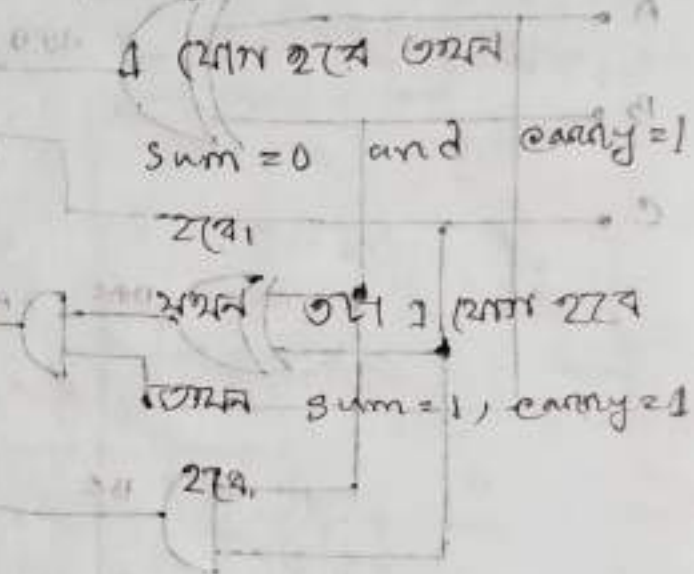 এ যোগ হবে তখন
sum = 0 and carry = 1
হবে।
যখন তিনটা 1 যোগ হবে
তখন sum = 1, carry = 1
হবে,